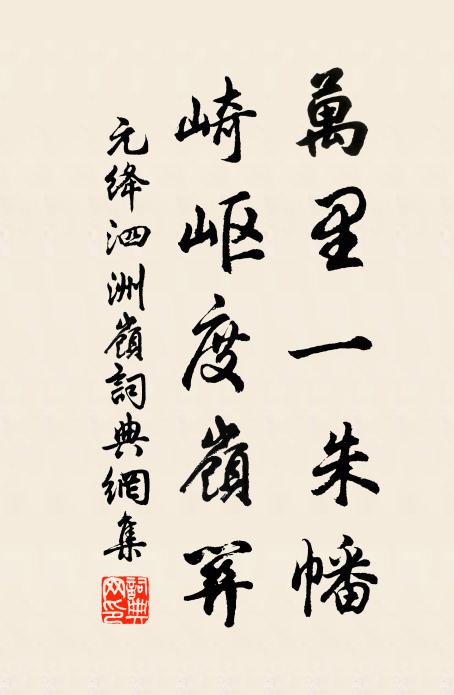 萬里一朱幡
崎岖度嶺關
元绛泗洲嶺詞典網集
詞典
网印